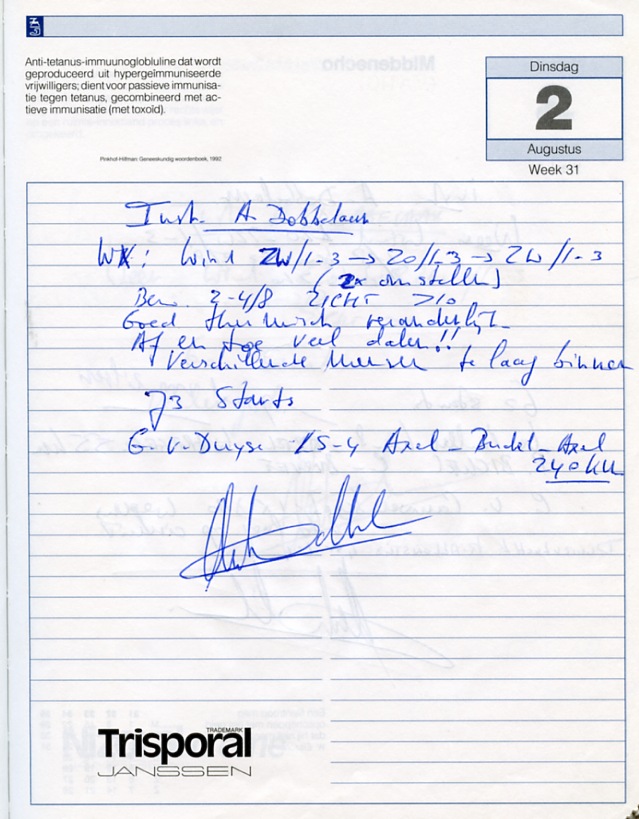 Anti-tetanus-immuunoglobluline dat wordt
geproduceerd uit hypergeïmmuniseerde
vrijwilligers; dient voor passieve immunisa-
tie tegen tetanus, gecombineerd met ac-
tieve immunisatie (met toxoïd).
Pinkhof-Hilfman: Geneeskundig woordenboek, 1992
Dinsdag
2
Augustus
Week 31
Inst. A. Dobbelaer
WX: Wind ZW/1-3 → ZO/1-3 → ZW/1-3
(2x omstellen)
Bew. 2-4/8 ZICHT >10
Goed thermisch veranderlijk
Af en toe veel dalen!!
Verschillende mensen te laag binnen
73 Starts
G. v. Duyse LS-4 Axel - Budel - Axel
240 km
Trisporal
TRADEMARK
JANSSEN